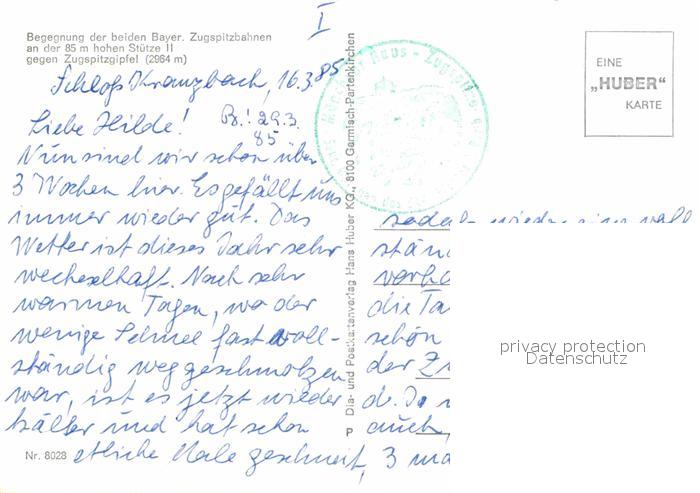 I
Begegnung der beiden Bayer. Zugspitzbahnen
an der 85 m hohen Stütze II
gegen Zugspitzgipfel (2964 m)
Schloß Kranzbach, 16.3.85
Liebe Hilde! B.! 29.3.
85
Nun sind wir schon über
3 Wochen hier. Es gefällt uns
immer wieder gut. Das
Wetter ist dieses Jahr sehr
wechselhaft. Nach sehr
warmen Tagen, wo der
wenige Schnee fast voll-
ständig weggeschmolzen
war, ist es jetzt wieder
kälter und hat schon
Nr. 8028 etliche Male geschneit,
P Dia- und Postkartenverlag Hans Huber KG., 8100 Garmisch-Partenkirchen
Haus - Zugspitze
EINE
„HUBER"
KARTE
sodaß wieder eine voll
stän
vorha
die Ta
schön
der Z
auch,
3 ma
privacy protection
Datenschutz